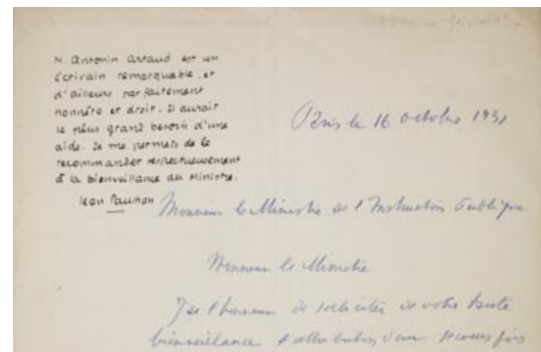 M. Antonin Artaud est un
écrivain remarquable, et
d'ailleurs parfaitement
honnête et droit. Il aurait
le plus grand besoin d'une
aide. Je me permets de le
recommander respectueusement
à la bienveillance du Ministre.
Jean Paulhan
Paris le 16 octobre 1931
Monsieur le Ministre de l'Instruction Publique
Monsieur le Ministre
J'ai l'honneur de solliciter de votre haute
bienveillance l'attribution d'un secours